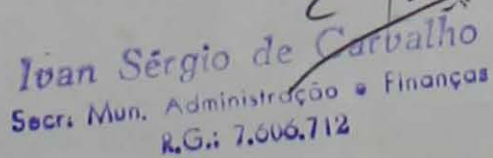 Ivan Sérgio de Carvalho
Secr. Mun. Administração e Finanças
R.G.: 7.606.712